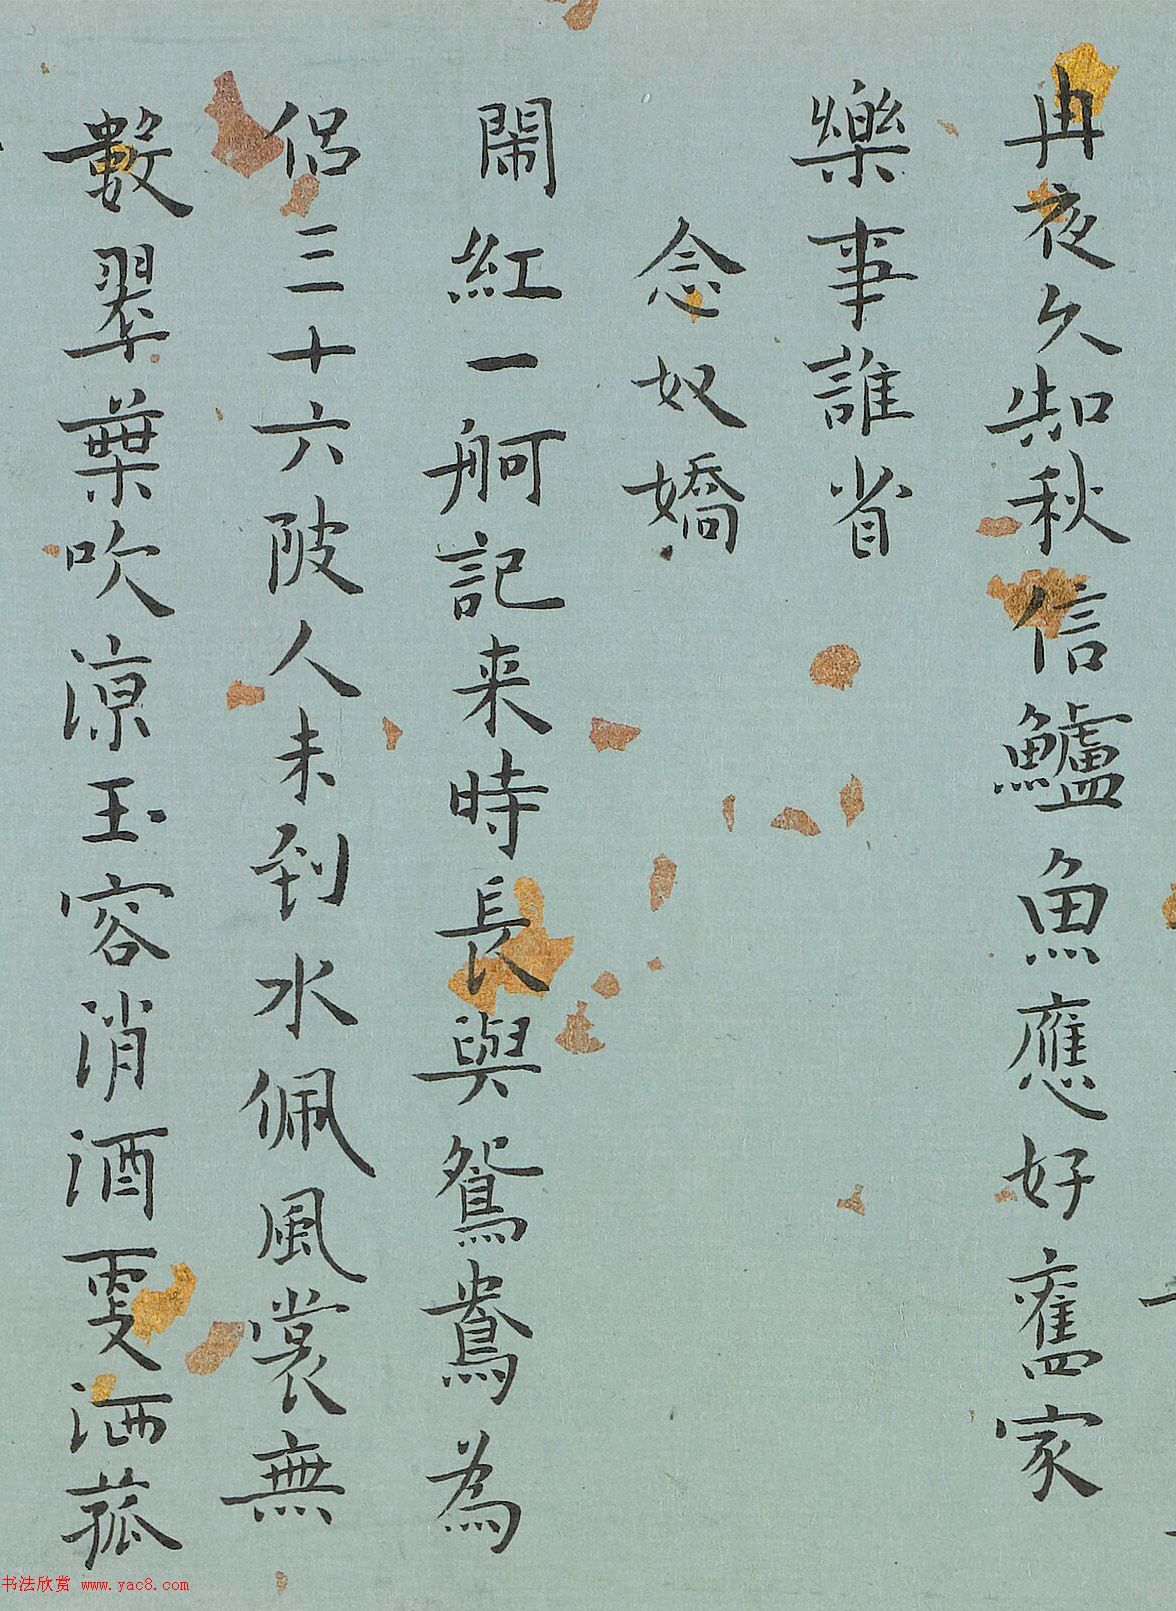 冉夜久知秋信鱸魚應好舊家
樂事誰省
念奴嬌
鬧紅一舸記来時長與鴛鴦為
侶三十六陂人未到水佩風裳無
數翠葉吹涼玉容消酒更洒菰
书法欣赏 www.yac8.com